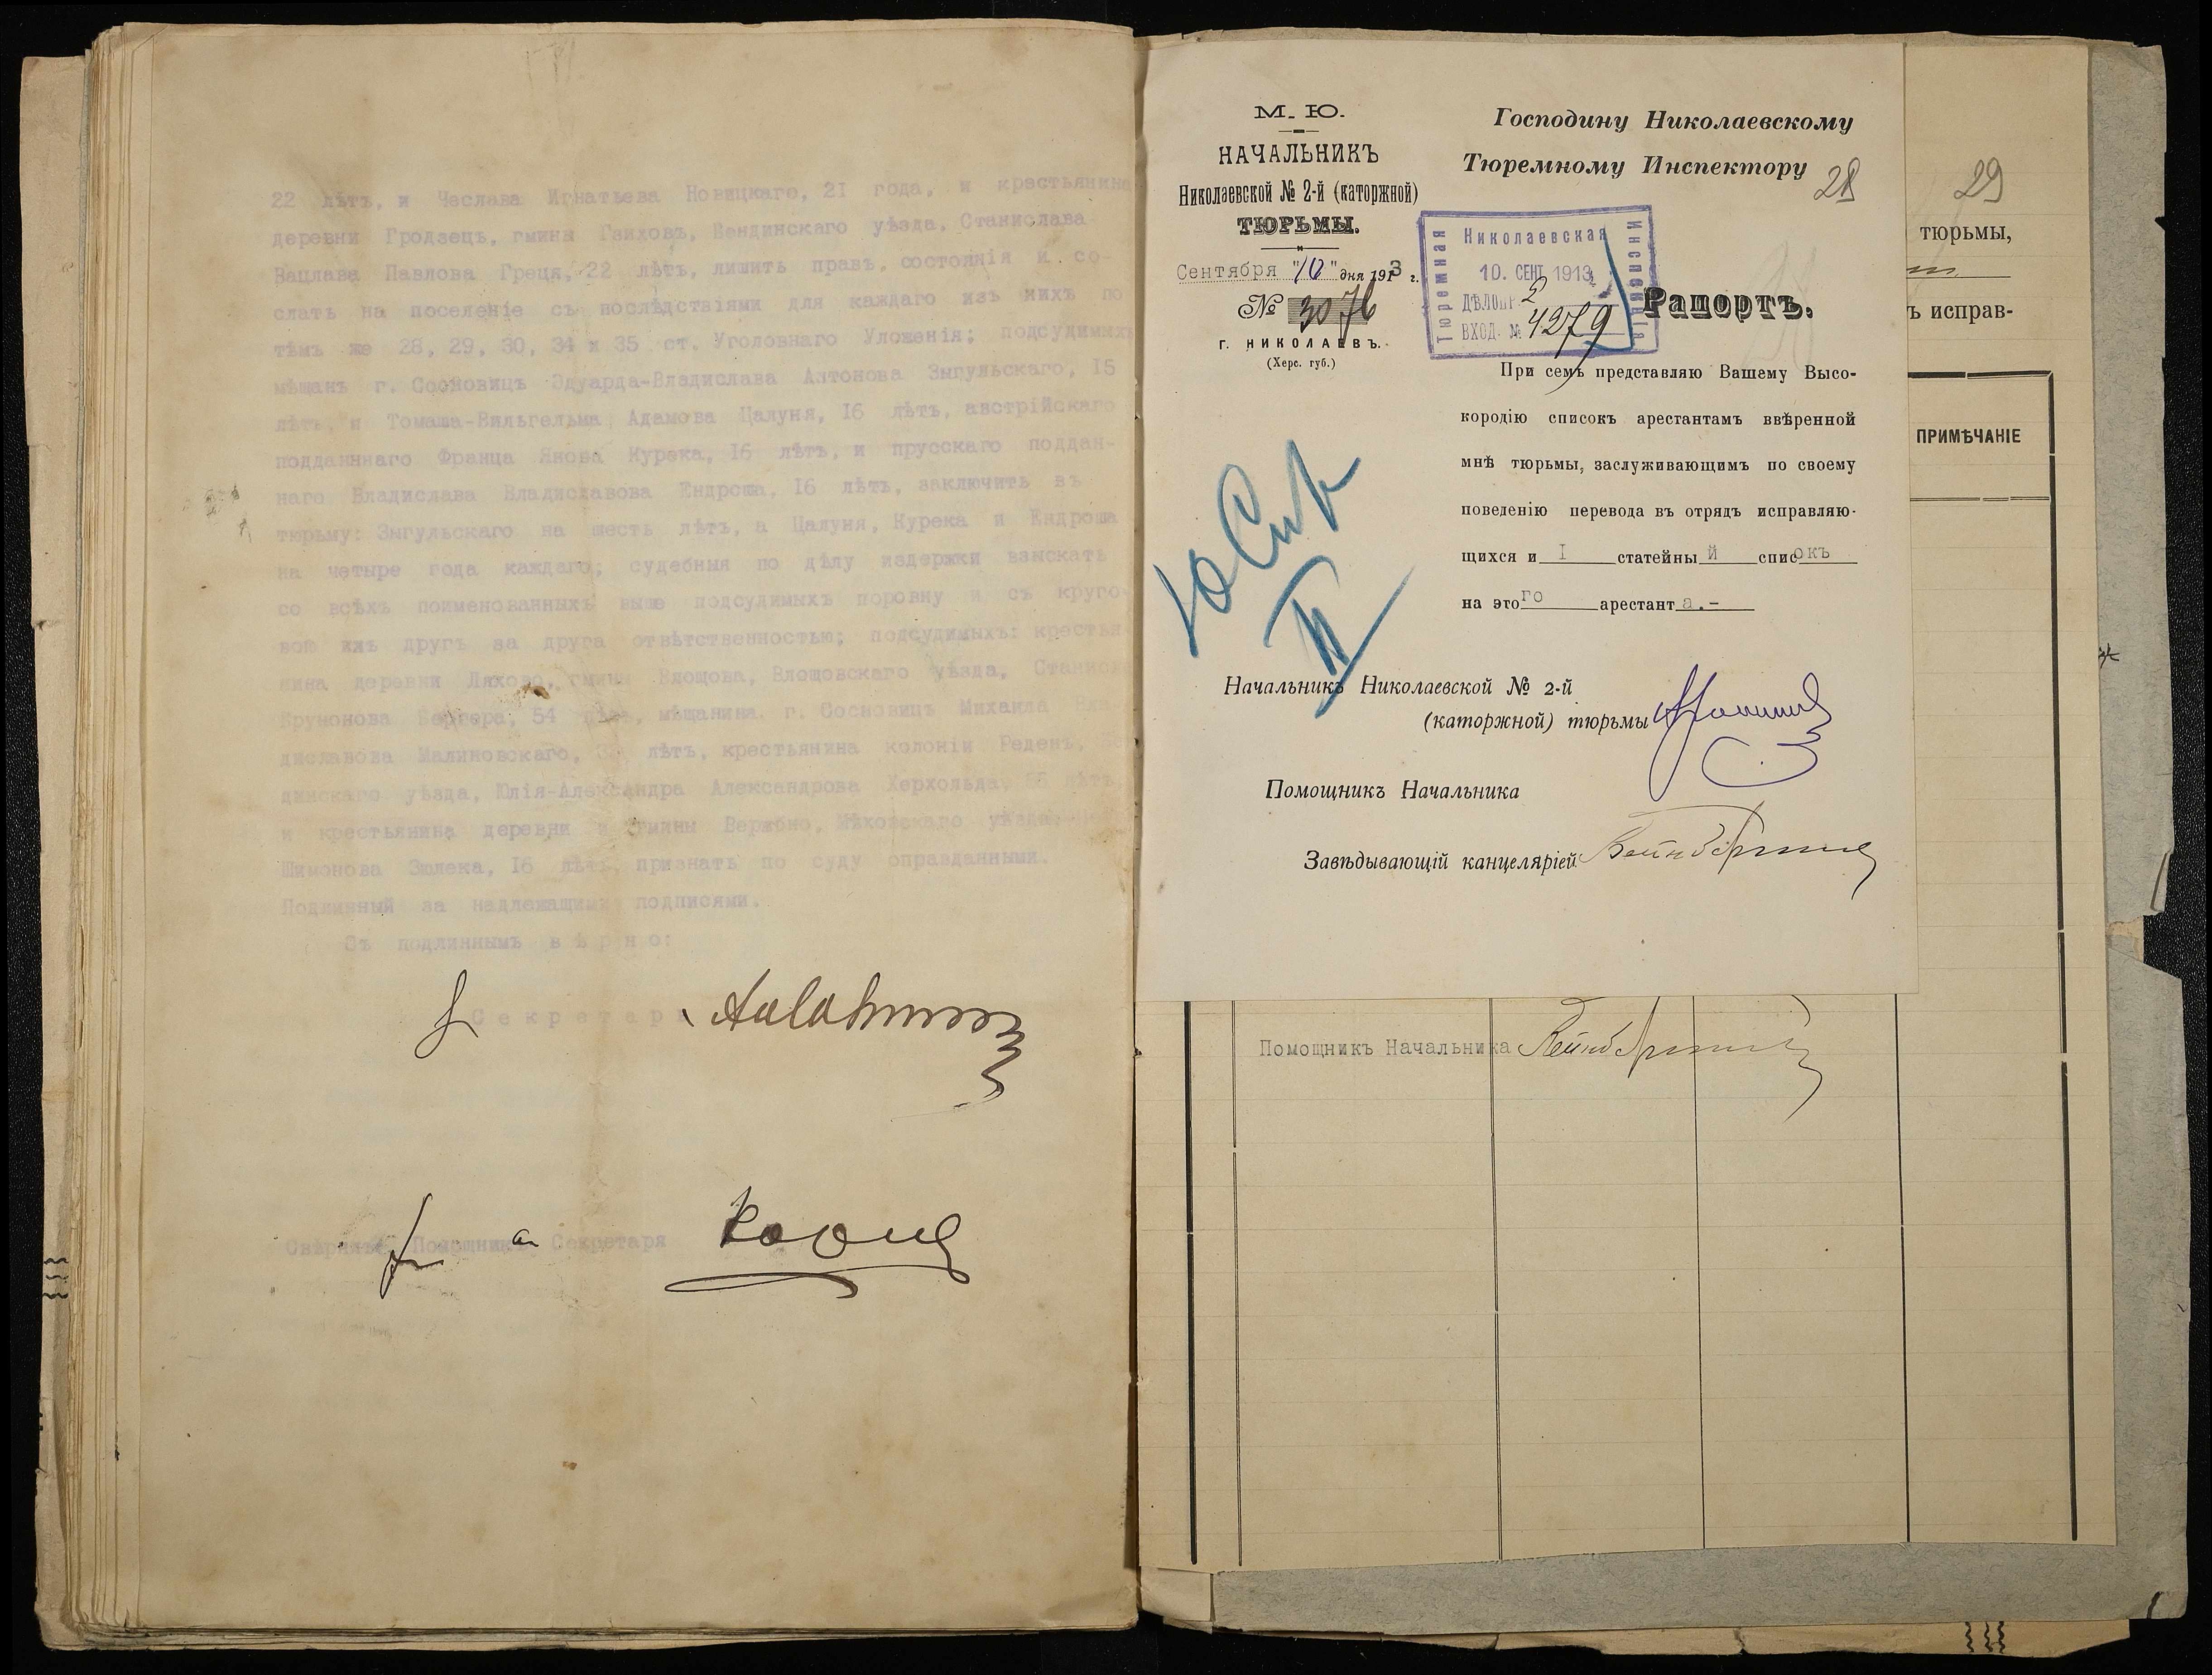 22 лѣтъ, и Чеслава Игнатьева Новицкаго, 21 года, и крестьянина
деревни Гродзецъ, гмина Бендинскаго уѣзда, Станислава
Вацлава Павлова 22 лѣтъ, лишить правъ, состоянія и со-
слать на поселеніе съ послѣдствіями для каждаго изъ нихъ по
тѣмъ же 28, 29, 30, 34 и 35 ст. Уголовнаго Уложенія; подсудимыхъ
мѣщанъ г. Сосновицъ Эдуарда-Владислава Антонова Змгульскаго, 15
лѣтъ, и Томаша-Вильгельма Адамова Цалуня, 16 лѣтъ, австрійскаго
подданнаго Франца Якова Курека, 16 лѣтъ, и прусскаго поддан-
наго Владислава Владиславова Ендроша, 16 лѣтъ, заключить въ
тюрьму: Змгульскаго на шесть лѣтъ, а Цалуня, Курека и Ендроша
на четыре года каждаго; судебныя по дѣлу издержки взыскать
со всѣхъ поименованныхъ выше подсудимыхъ поровну и съ круго-
вой ихъ другъ за друга отвѣтственностью; подсудимыхъ: крестья-
нина деревни Ляхово, Влощовскаго уѣзда,
Брунонова Бергера, 54 лѣтъ, мѣщанина г. Сосновицъ Михаила Вла-
диславова Малиновскаго, лѣтъ, крестьянина колоніи Реденъ,
динскаго уѣзда, Юлія-Александра Александрова Херхольда, лѣтъ,
и крестьянина деревни и гмины Вержбно, Мѣховскаго уѣзда,
Шимонова Зюлека, 16 лѣтъ, признать по суду оправданными.
Подлинный за надлежащими подписями.
Съ подлиннымъ вѣрно:
Секретарь
Свѣрялъ: Помощникъ Секретаря
М. Ю.
НАЧАЛЬНИКЪ
Николаевской № 2-й (каторжной)
ТЮРЬМЫ.
Сентября "10" дня 1913 г.
№ 3076
г. НИКОЛАЕВЪ.
(Херс. губ.)
Господину Николаевскому
Тюремному Инспектору
28
Тюремная
Николаевская
Инспекція
10. СЕНТ 1913
ДѢЛОПР. 2
ВХОД. № 4279
Рапортъ.
При семъ представляю Вашему Высо-
кородію списокъ арестантамъ ввѣренной
мнѣ тюрьмы, заслуживающимъ по своему
поведенію перевода въ отрядъ исправляю-
щихся и 1 статейный списокъ
на этого арестанта.-
Начальникъ Николаевской № 2-й
(каторжной) тюрьмы
Помощникъ Начальника
Завѣдывающій канцеляріей
29
тюрьмы,
ъ исправ-
ПРИМѢЧАНІЕ
Помощникъ Начальника